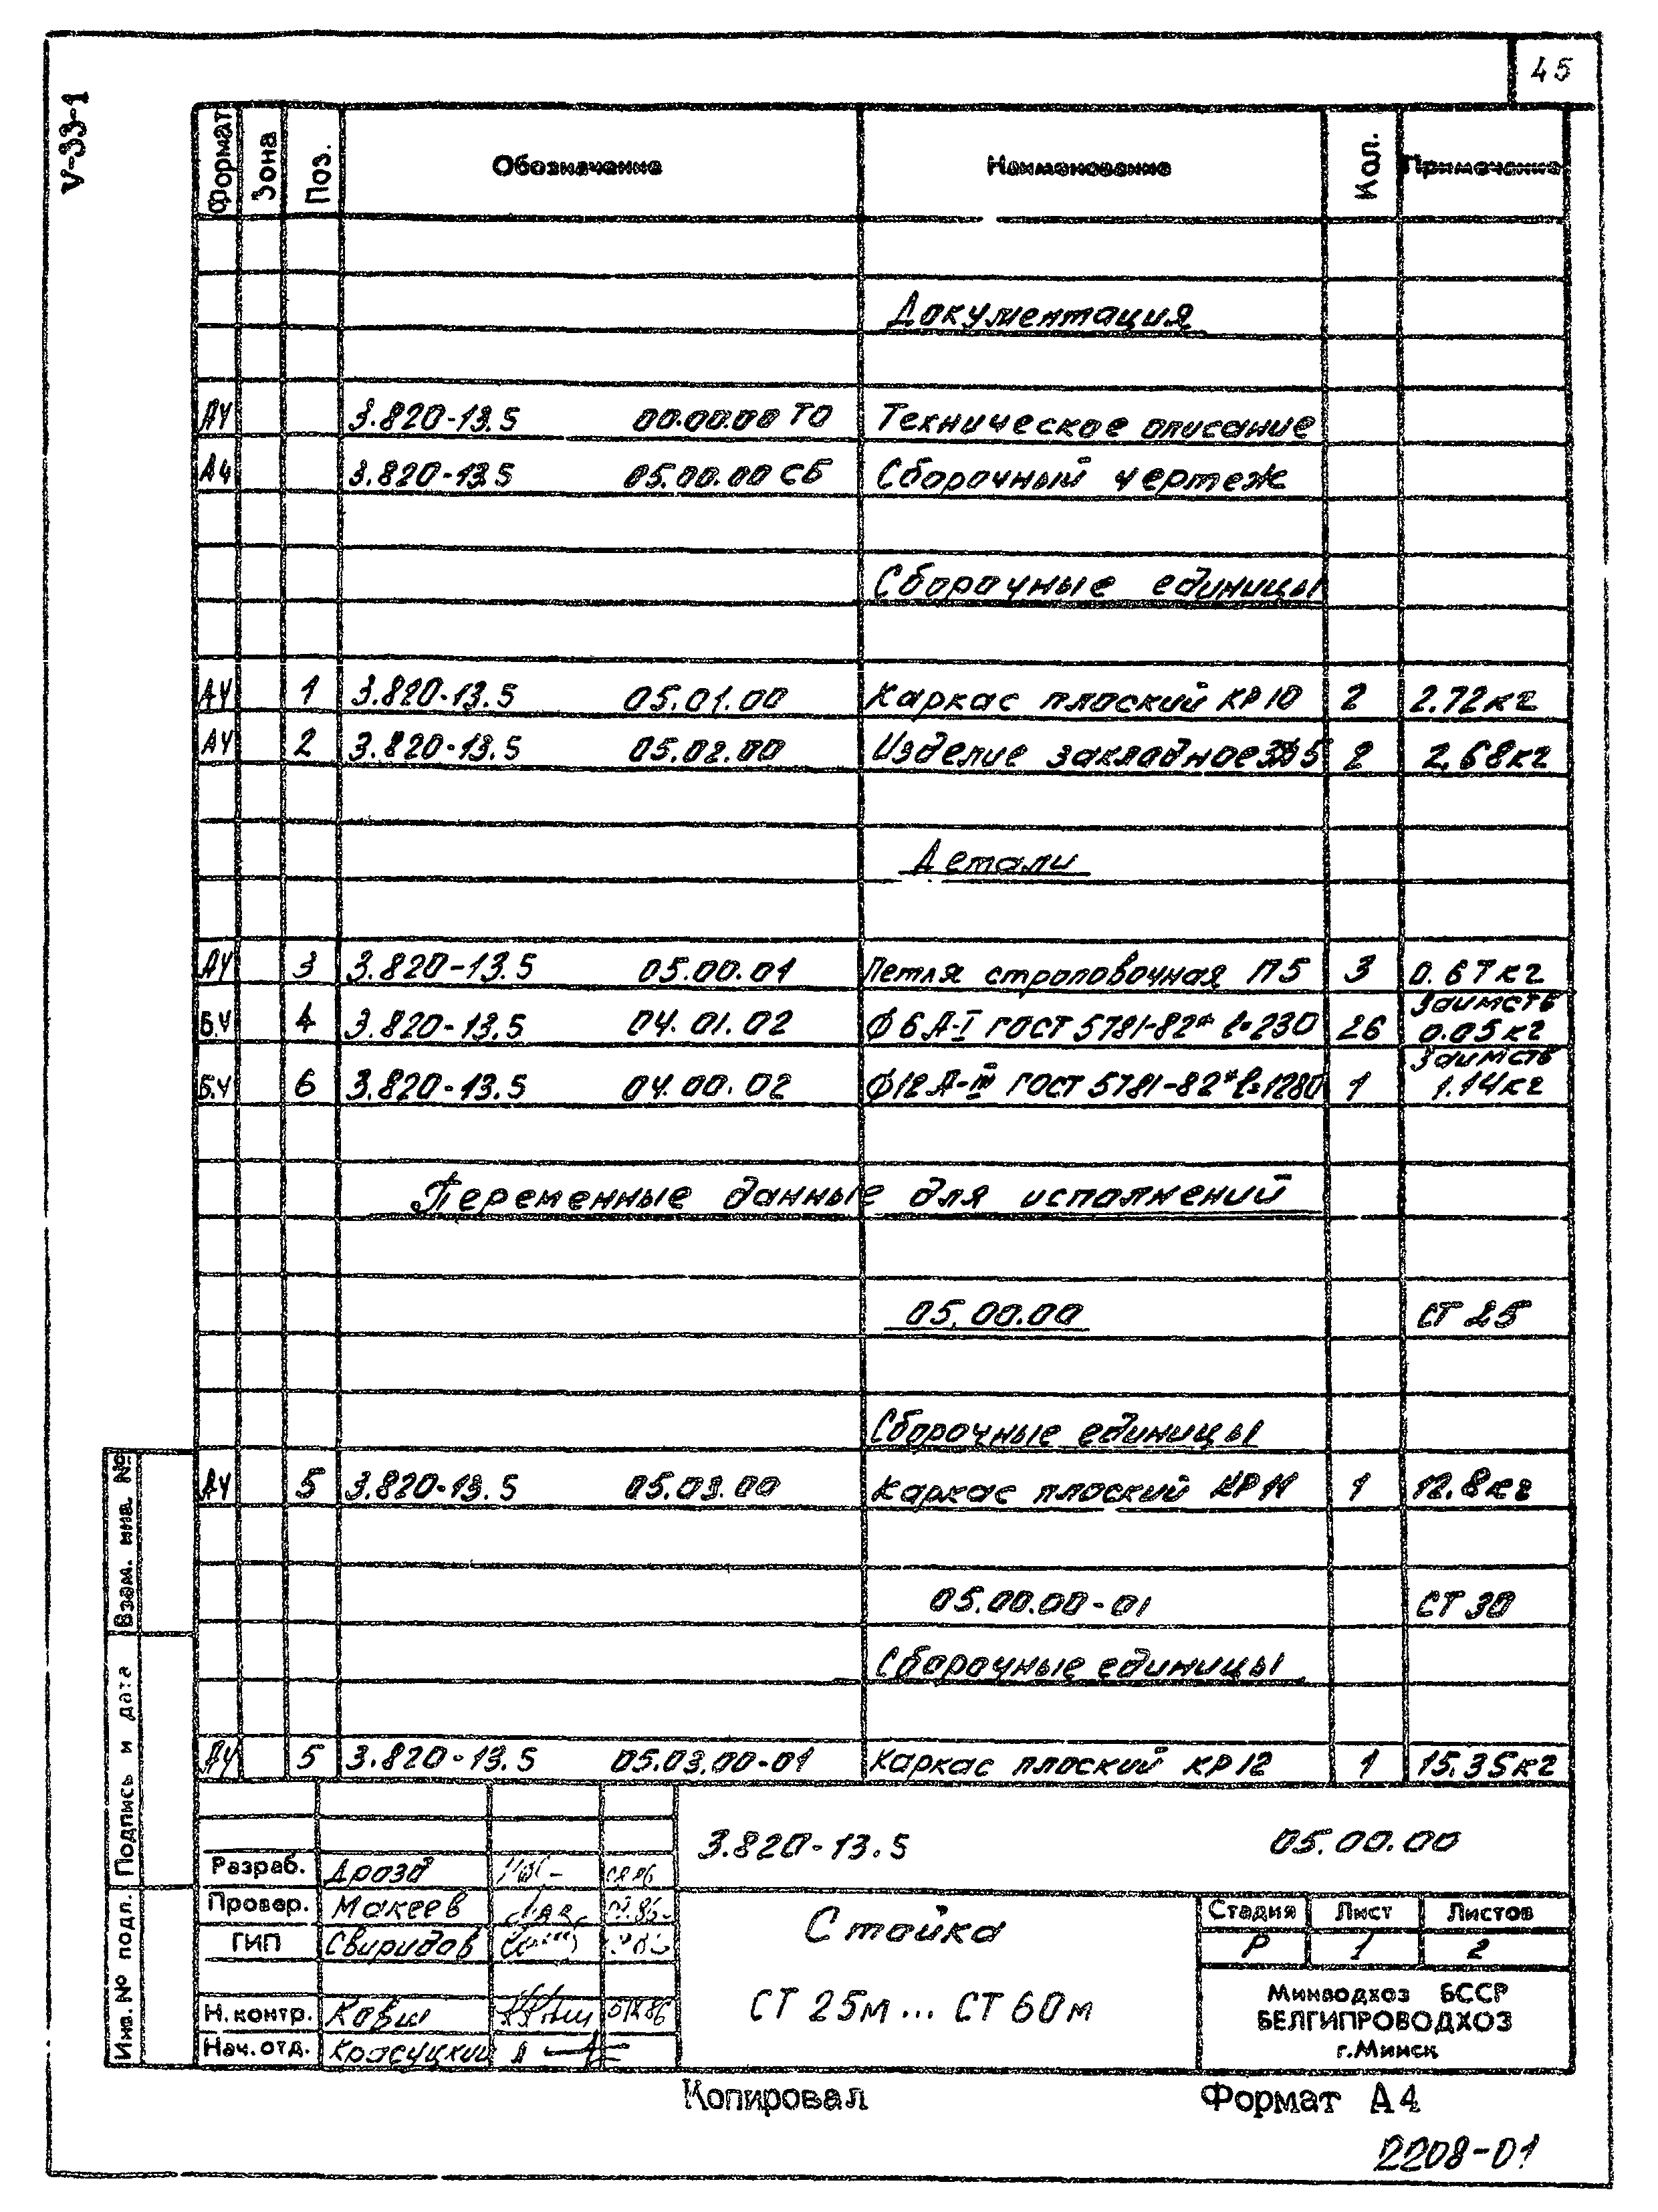 45
V-33-1
Формат Зона Поз. Обозначение Наименование Кол. Примечание
Документация
А4 3.820-13.5 00.00.00 ТО Техническое описание
А4 3.820-13.5 05.00.00 СБ Сборочный чертеж
Сборочные единицы
А4 1 3.820-13.5 05.01.00 Каркас плоский КР10 2 2.72кг
А4 2 3.820-13.5 05.02.00 Изделие закладное 2 2,68кг
Детали
А4 3 3.820-13.5 05.00.01 Петля строповочная П5 3 0.67кг
Заимств
Б.Ч 4 3.820-13.5 04.01.02 Ф6А-I ГОСТ 5781-82* ℓ=230 26 0.05кг
Заимств
Б.Ч 6 3.820-13.5 04.00.02 Ф12А-III ГОСТ 5781-82* ℓ=1280 1 1.14кг
Переменные данные для исполнений
05.00.00 СТ 25
Сборочные единицы
А4 5 3.820-13.5 05.03.00 Каркас плоский КР11 1 12.8кг
05.00.00-01 СТ 30
Сборочные единицы
А4 5 3.820-13.5 05.03.00-01 Каркас плоский КР12 1 15.35кг
Взам. инв. №
Подпись и дата
Инв. № подл.
3.820-13.5 05.00.00
Разраб. Дрозд
Провер. Макеев
ГИП Свиридов
Н.контр. Ковш
Нач.отд. Красуцкий
Стойка
СТ 25м... СТ 60м
Стадия Лист Листов
Р 1 2
Минводхоз БССР
БЕЛГИПРОВОДХОЗ
г.Минск
Копировал Формат А4
2208-01